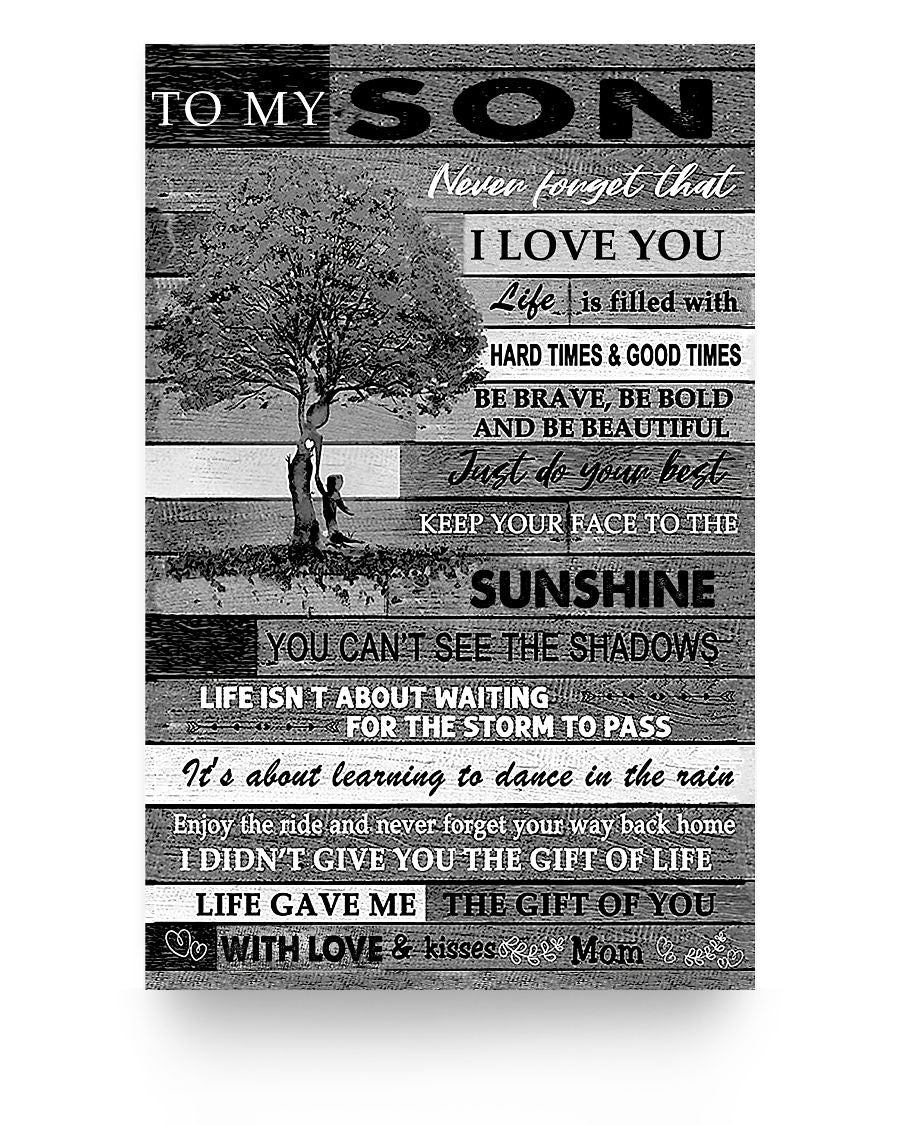 TO MY SON
Never forget that
I LOVE YOU
Life is filled with
HARD TIMES & GOOD TIMES
BE BRAVE, BE BOLD
AND BE BEAUTIFUL
Just do your best
KEEP YOUR FACE TO THE
SUNSHINE
YOU CAN'T SEE THE SHADOWS
LIFE ISN T ABOUT WAITING
FOR THE STORM TO PASS
It's about learning to dance in the rain
Enjoy the ride and never forget your way back home
I DIDN'T GIVE YOU THE GIFT OF LIFE
LIFE GAVE ME THE GIFT OF YOU
WITH LOVE & kisses Mom